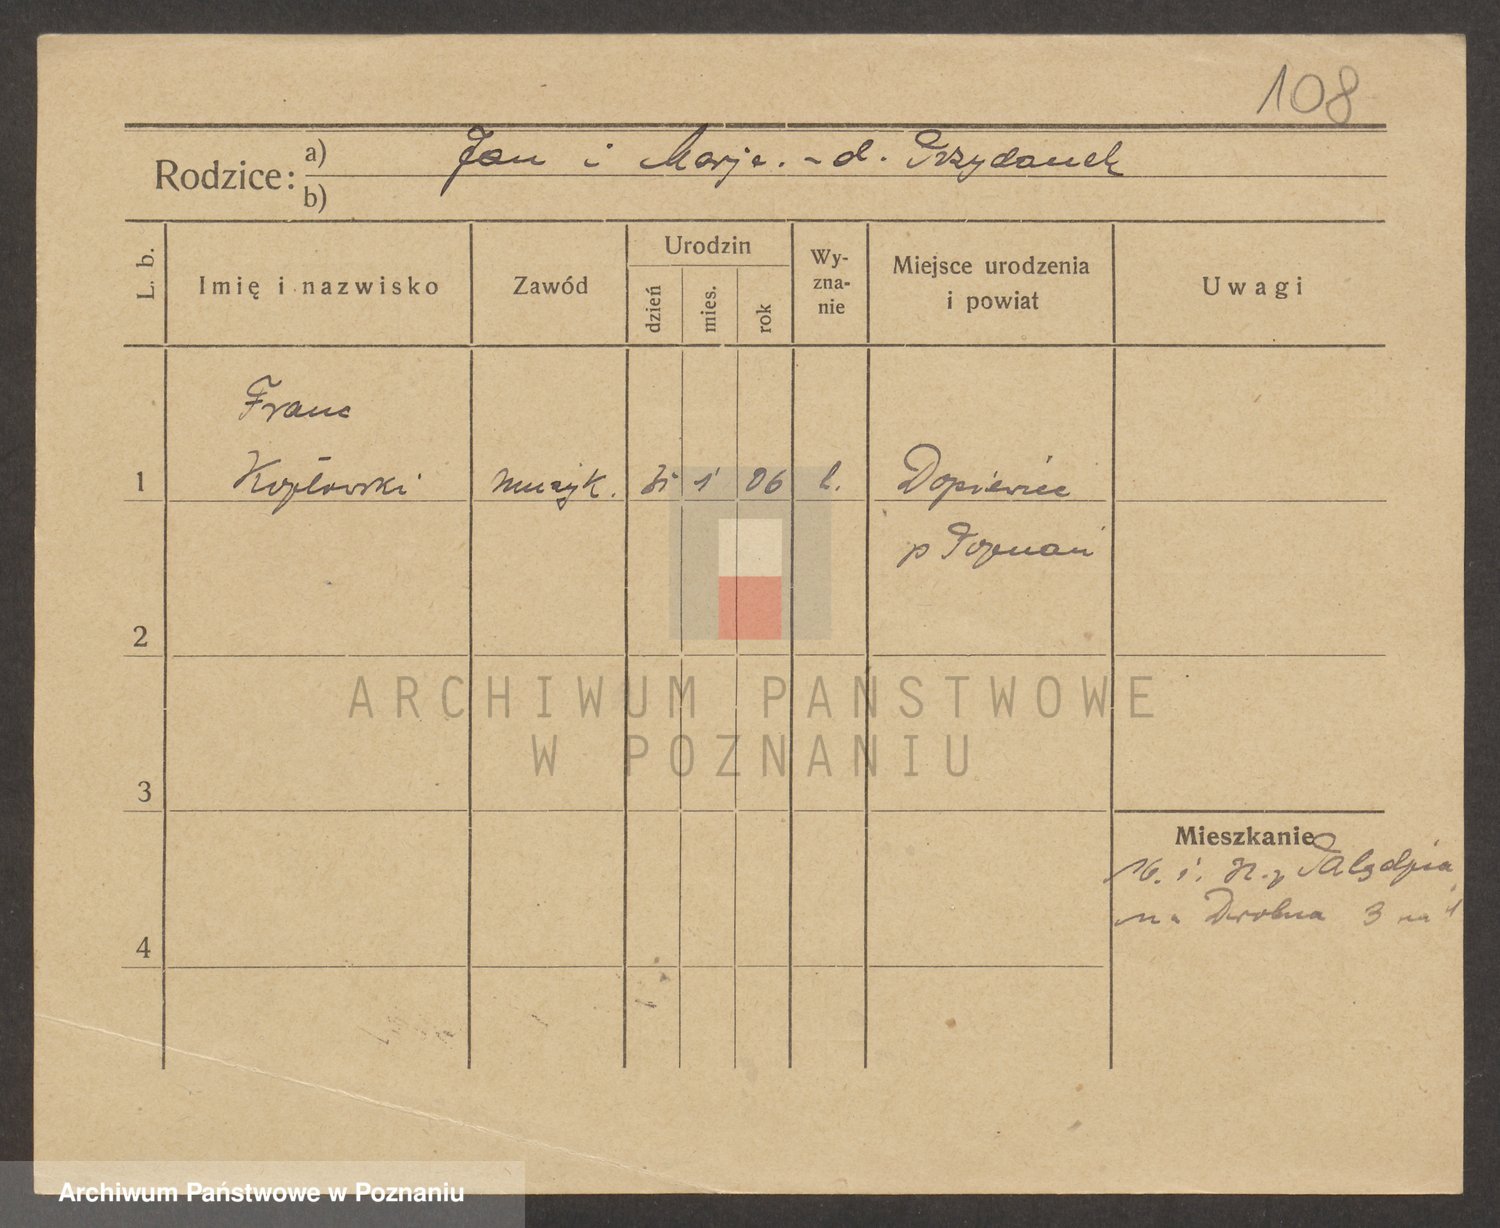 108
Rodzice: a) Jan i Marja. - d. Przydanek
b)
L. b.
Imię i nazwisko
Zawód
Urodzin
dzień
mies.
rok
Wy-
zna-
nie
Miejsce urodzenia
i powiat
Uwagi
Franc
1 Kozłowski muzyk. 1 06 Dopiewiec
p Poznań
2
3
4
Mieszkanie
na Drobna 3
ARCHIWUM PAŃSTWOWE
W POZNANIU
Archiwum Państwowe w Poznaniu